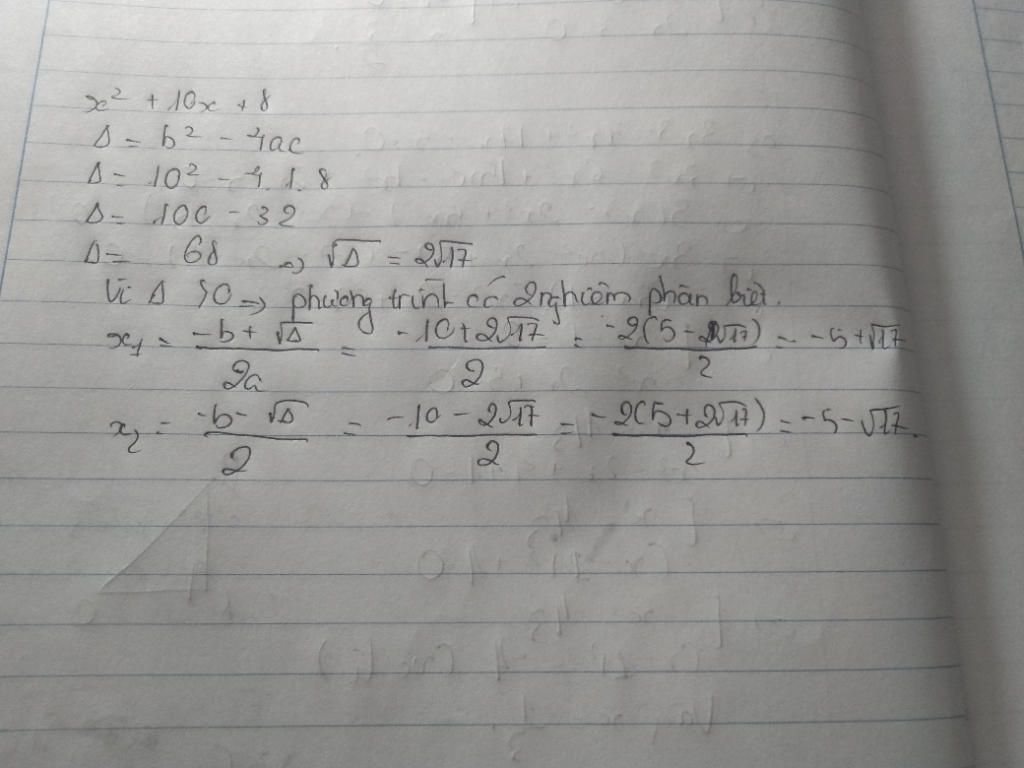 x² + 10x + 8
Δ = b² - 4ac
Δ = 10² - 4.1.8
Δ = 100 - 32
Δ = 68 => √Δ = 2√17
Vì Δ > 0 => phương trình có 2 nghiệm phân biệt.
x₁ = (-b + √Δ)/2a = (-10 + 2√17)/2 = (-2(5 - √17))/2 = -5 + √17
x₂ = (-b - √Δ)/2 = (-10 - 2√17)/2 = (-2(5 + 2√17))/2 = -5 - √17.